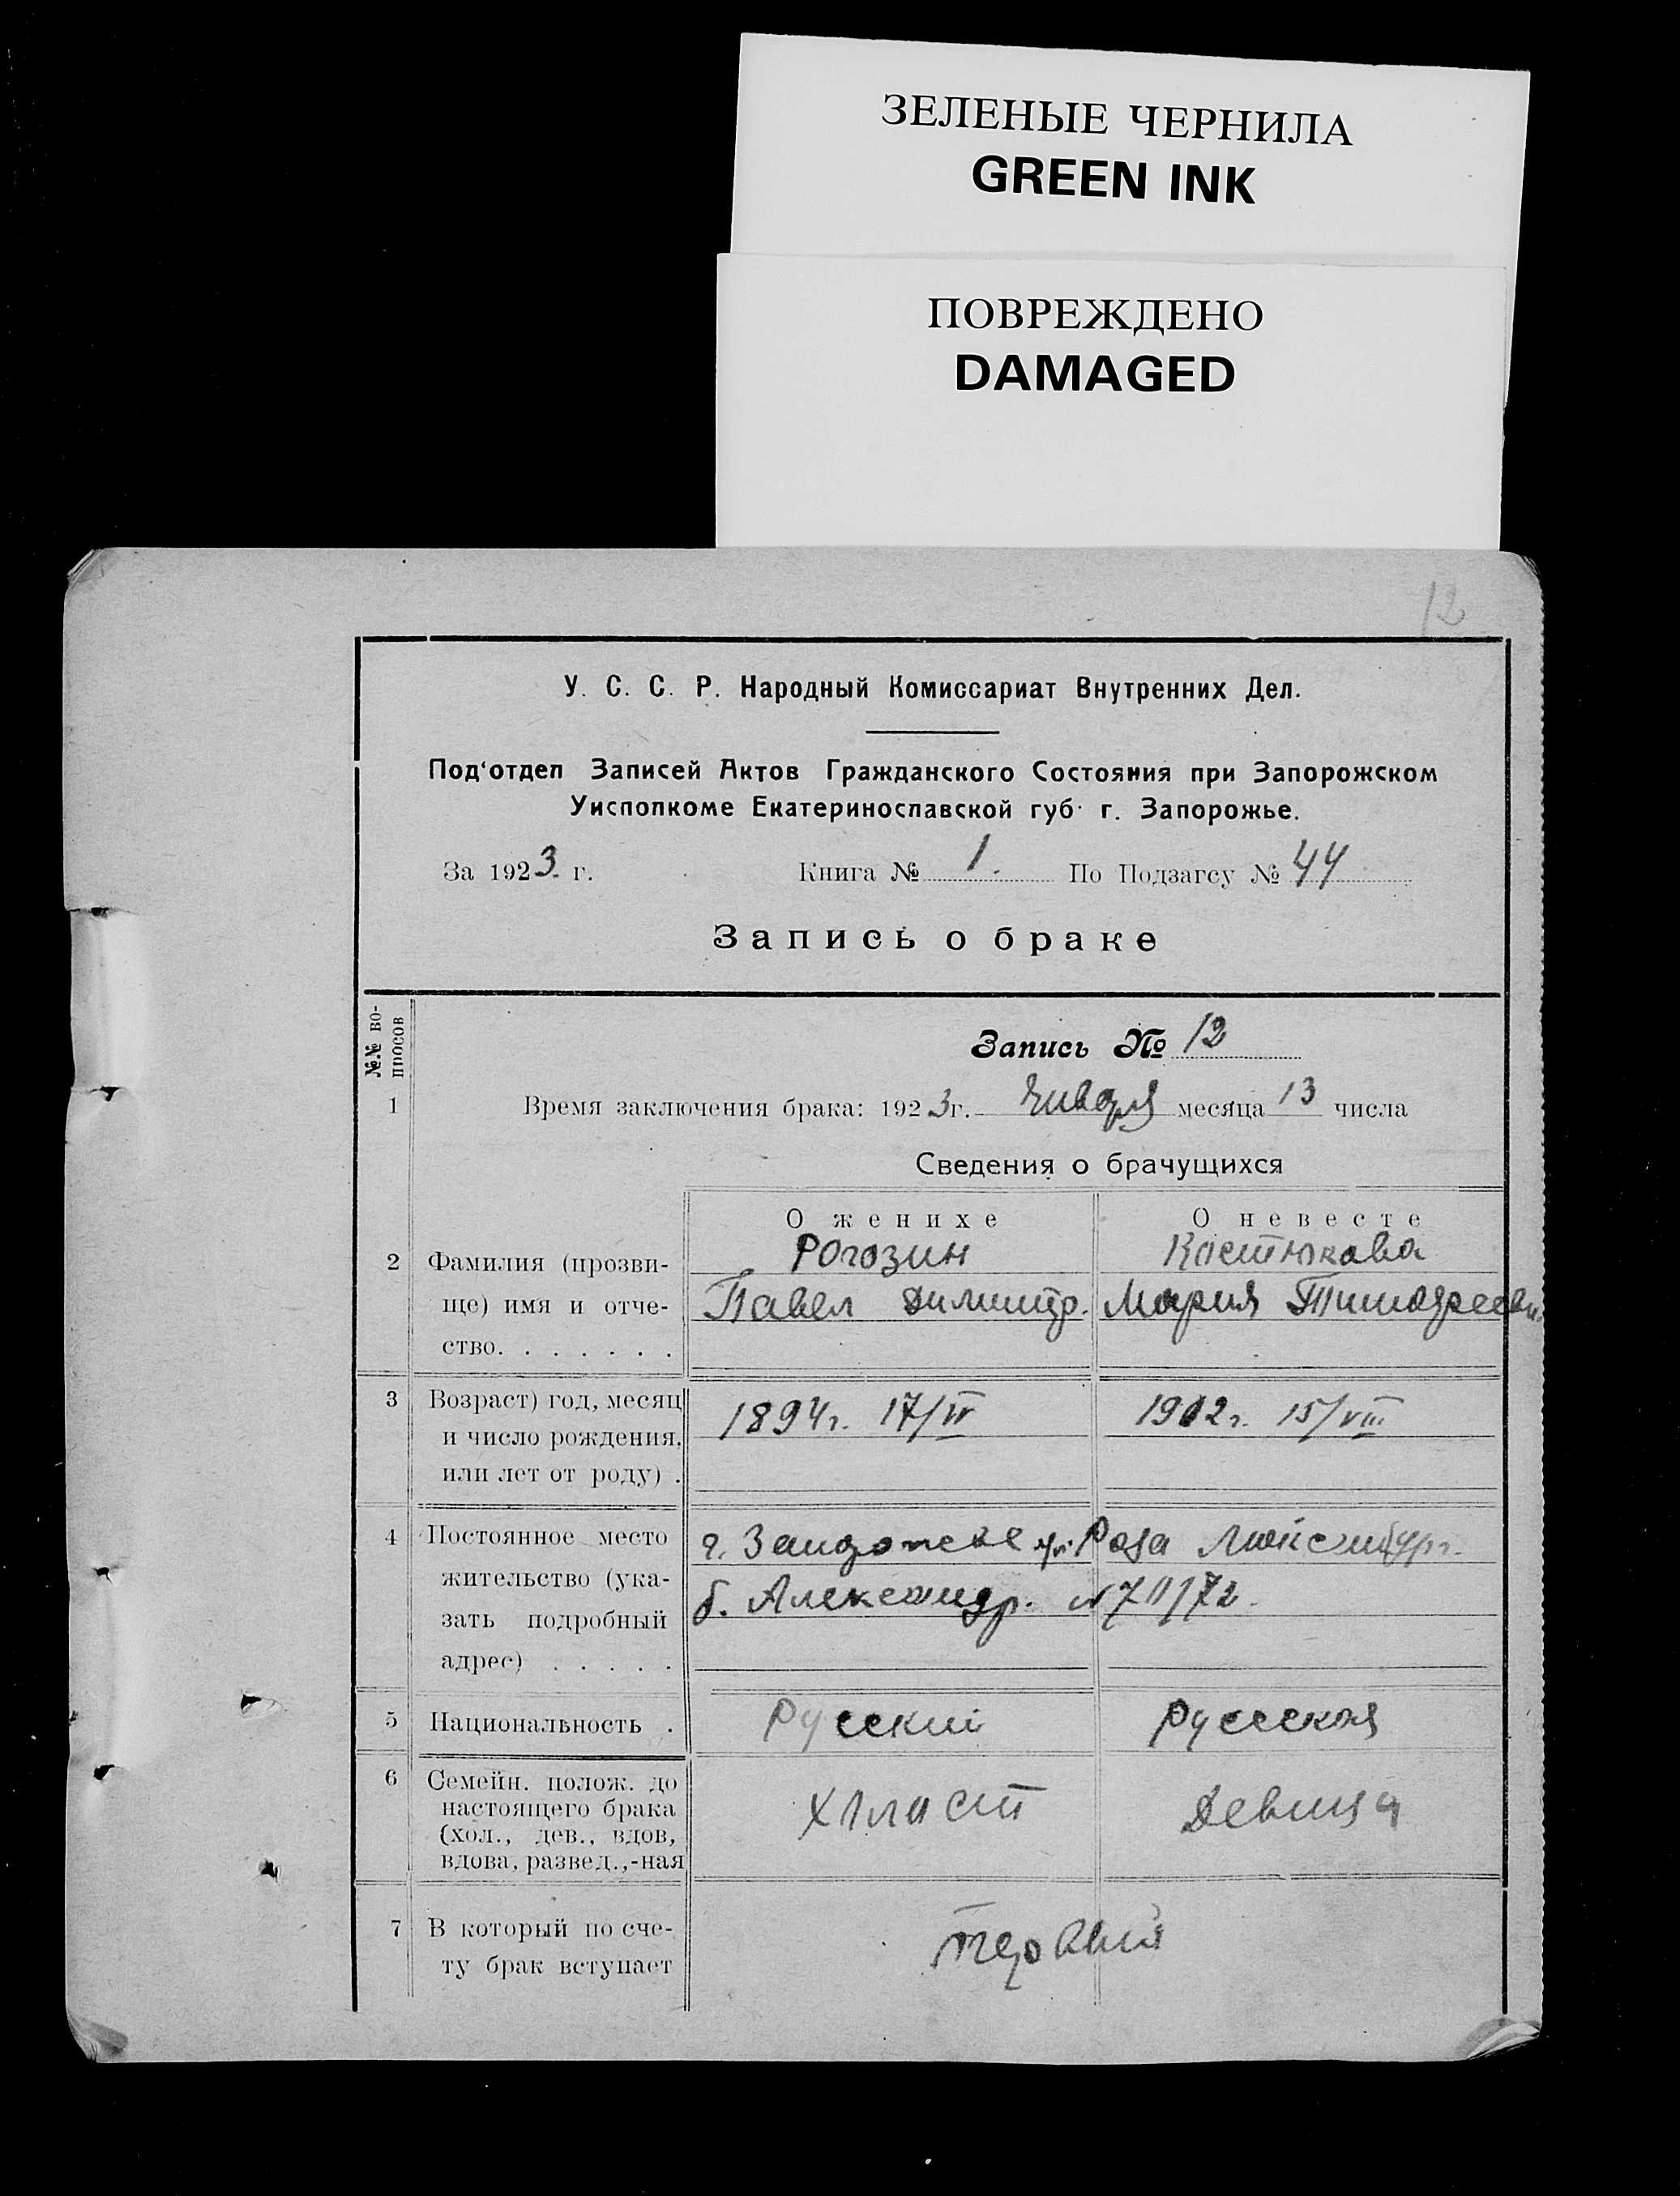 ЗЕЛЕНЫЕ ЧЕРНИЛА
GREEN INK
ПОВРЕЖДЕНО
DAMAGED
12
У. С. С. Р. Народный Комиссариат Внутренних Дел.
Под'отдел Записей Актов Гражданского Состояния при Запорожском
Уисполкоме Екатеринославской губ. г. Запорожье.
За 1923 г. Книга № 1. По Подзагсу № 44
Запись о браке
№№ во-
просов
Запись № 12
1 Время заключения брака: 1923 г. Января месяца 13 числа
Сведения о брачущихся
О женихе О невесте
2 Фамилия (прозви- Рогозин Костюкова
ще) имя и отче- Павел Димитр. Мария
ство. . . . . . .
3 Возраст) год, месяц 1894 г. 17/IV 1902 г. 15/VIII
и число рождения,
или лет от роду) .
4 Постоянное место г. ул. Роза Люксембург.
жительство (ука- б. Александр. №70/72.
зать подробный
адрес) . . . . .
5 Национальность . Русский Русская
6 Семейн. полож. до
настоящего брака Холост Девица
(хол., дев., вдов,
вдова, развед.,-ная
7 В который по сче- первый
ту брак вступает